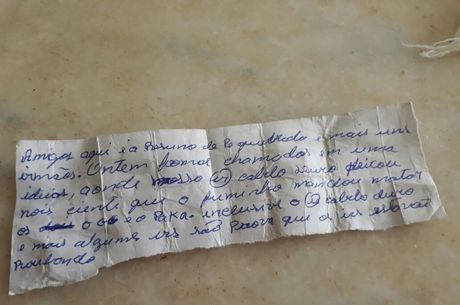 Amigos aqui é a Rosimo de Pe quebrado e mais uns
irmãos. Ontem fomos chamados em uma
ideia, aonde nosso cabelo duro deicou
nois cienti que o fuminho mandou matar
os o GG e o Paka. inclusive o cabelo duro
e mais alguns irs são prova que os irs estavão
Roubando